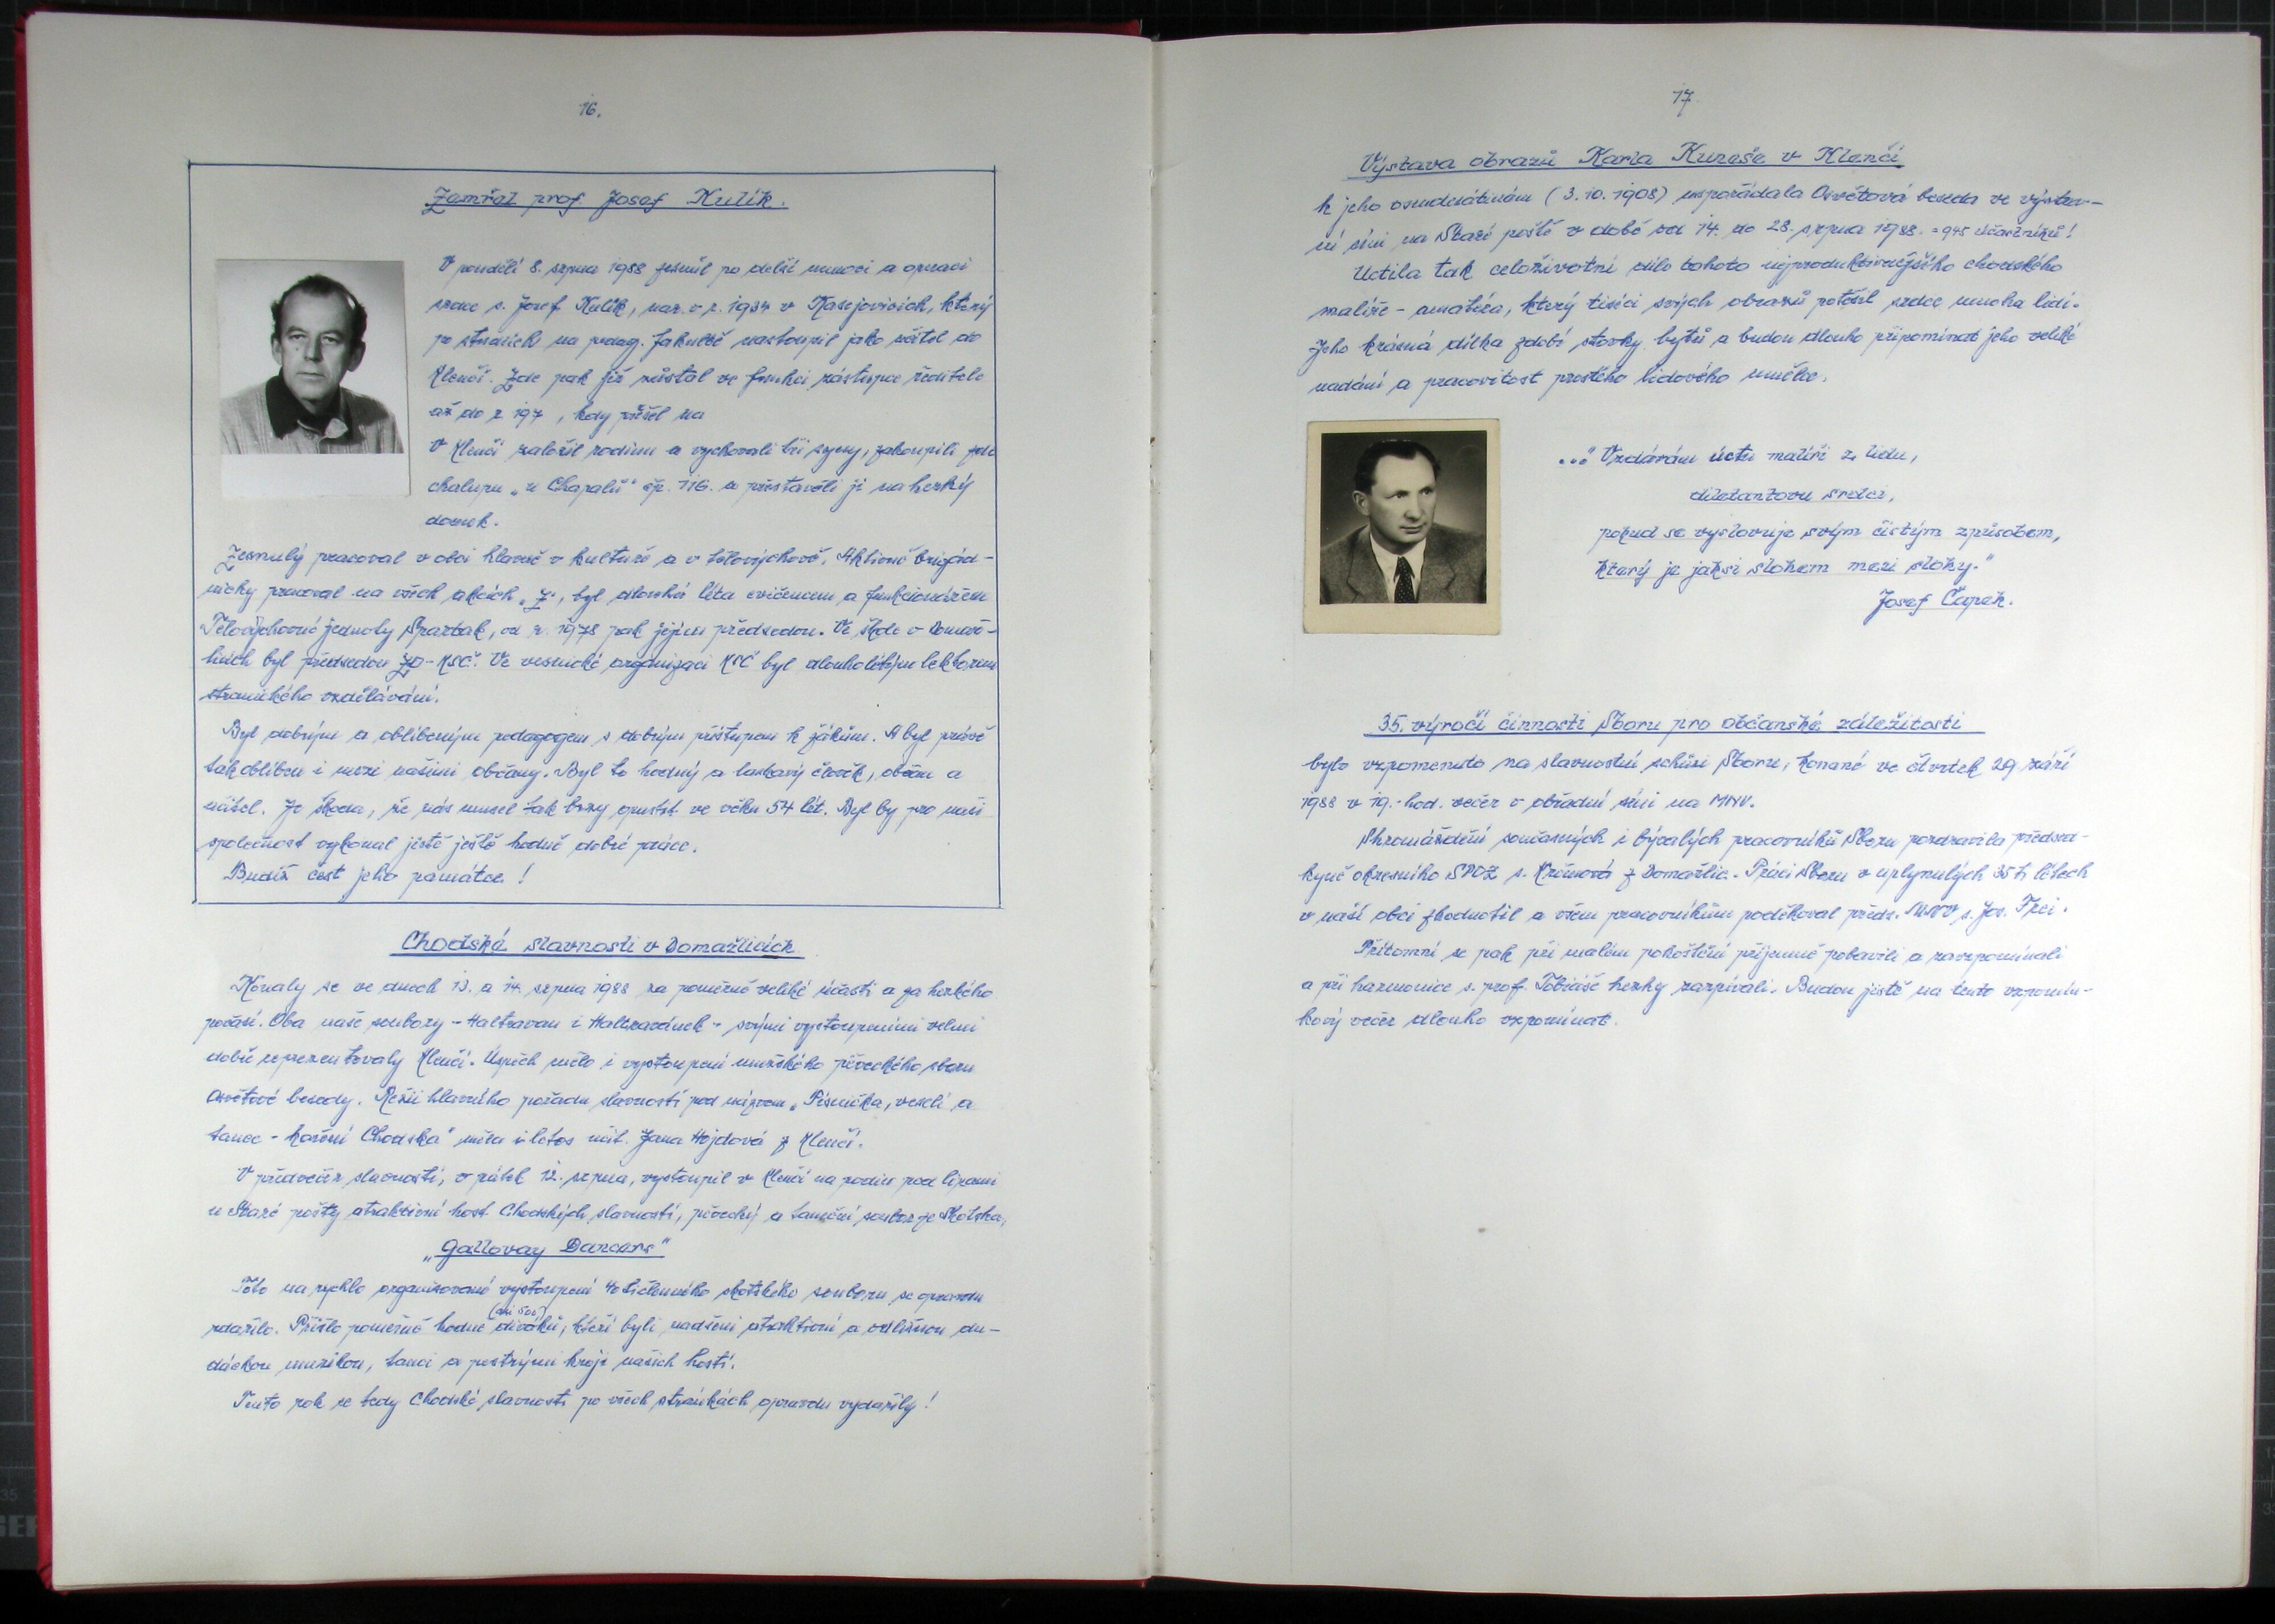 16.
Zemřel prof. Josef Kulík.
V pondělí 8. srpna 1988 zesnul po delší nemoci a operaci
srdce s. Josef Kulík, nar. v r. 1934 v Kasejovicích, který
po studiích na pedag. fakultě nastoupil jako učitel do
Klenčí. Zde pak již zůstal ve funkci zástupce ředitele
až do r 197 , kdy přišel na
V Klenčí založil rodinu a vychovali tři syny, zakoupili zde
chalupu „u Chapalů" čp. 116. a přestavěli ji na hezký
domek.
Zesnulý pracoval v obci hlavně v kultuře a v tělovýchově. Aktivně brigád-
nicky pracoval na všech akcích „Z", byl dlouhá léta cvičencem a funkcionářem
Tělovýchovné jednoty Spartak, od r. 1978 pak jejím předsedou. Ve škole v Domaž-
licích byl předsedou ZO-KSČ. Ve vesnické organizaci KSČ byl dlouholetým lektorem
stranického vzdělávání.
Byl dobrým a oblíbeným pedagogem s dobrým přístupem k žákům. A byl právě
tak oblíben i mezi našimi občany. Byl to hodný a laskavý člověk, občan a
učitel. Je škoda, že nás musel tak brzy opustit ve věku 54 lét. Byl by pro naši
společnost vykonal jistě ještě hodně dobré práce.
Budiž čest jeho památce!
Chodské slavnosti v Domažlicích
Konaly se ve dnech 13. a 14. srpna 1988 za poměrně veliké účasti a za hezkého
počasí. Oba naše soubory - Haltravan i Haltravánek - svými vystoupeními velmi
dobře reprezentovaly Klenčí. Úspěch mělo i vystoupení mužského pěveckého sboru
Osvětové besedy. Režii hlavního pořadu slavností pod názvem „Písnička, veselí a
tanec - koření Chodska" měla i letos učit. Jana Hojdová z Klenčí.
V předvečer slavností, v pátek 12. srpna, vystoupil v Klenčí na podiu pod lipami
u Staré pošty atraktivní host Chodských slavností, pěvecký a taneční soubor ze Skotska,
„Gallovay Dancers"
Toto na rychlo organizované vystoupení 40tičlenného skotského souboru se opravdu
zdařilo. Přišlo poměrně hodně (asi 500) diváků, kteří byli nadšeni atraktivní a odlišnou du-
dáckou muzikou, tanci a pestrými kroji našich hostí.
Tento rok se tedy Chodské slavnosti po všech stránkách opravdu vydařily!
17
Výstava obrazů Karla Kureše v Klenčí
k jeho osmdesátinám (3. 10. 1908) uspořádala Osvětová beseda ve výstav-
ní síni na Staré poště v době od 14. do 28. srpna 1988. = 945 účastníků!
Uctila tak celoživotní dílo tohoto nejproduktivnějšího chodského
malíře - amatéra, který tisíci svých obrazů potěšil srdce mnoha lidí.
Jeho krásná dílka zdobí stovky bytů a budou dlouho připomínat jeho veliké
nadání a pracovitost prostého lidového umělce.
..." Vzdávám úctu malíři z lidu,
diletantovu srdci,
pokud se vyslovuje svým čistým způsobem,
který je jaksi slohem mezi slohy."
Josef Čapek.
35. výročí činnosti Sboru pro občanské záležitosti
bylo vzpomenuto na slavnostní schůzi Sboru, konané ve čtvrtek 29 září
1988 v 19.-hod. večer v obřadní síni na MNV.
Shromáždění současných i bývalých pracovníků Sboru pozdravila předsed-
kyně okresního SPOZ s. Křenová z Domažlic. Práci Sboru v uplynulých 35ti létech
v naší obci zhodnotil a všem pracovníkům poděkoval předs. MNV s. Jos. Frei.
Přítomní se pak při malém pohoštění příjemně pobavili a zavzpomínali
a při harmonice s. prof. Tobiáše hezky zazpívali. Budou jistě na tento vzpomín-
kový večer dlouho vzpomínat.